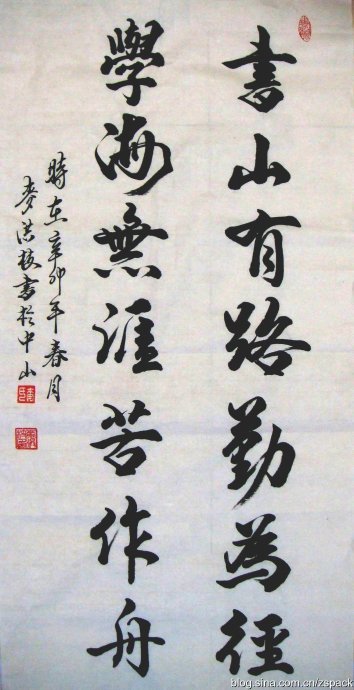 書山有路勤為徑
學海無涯苦作舟
時在辛卯年春月
書於中山
blog.sina.com.cn/zspack